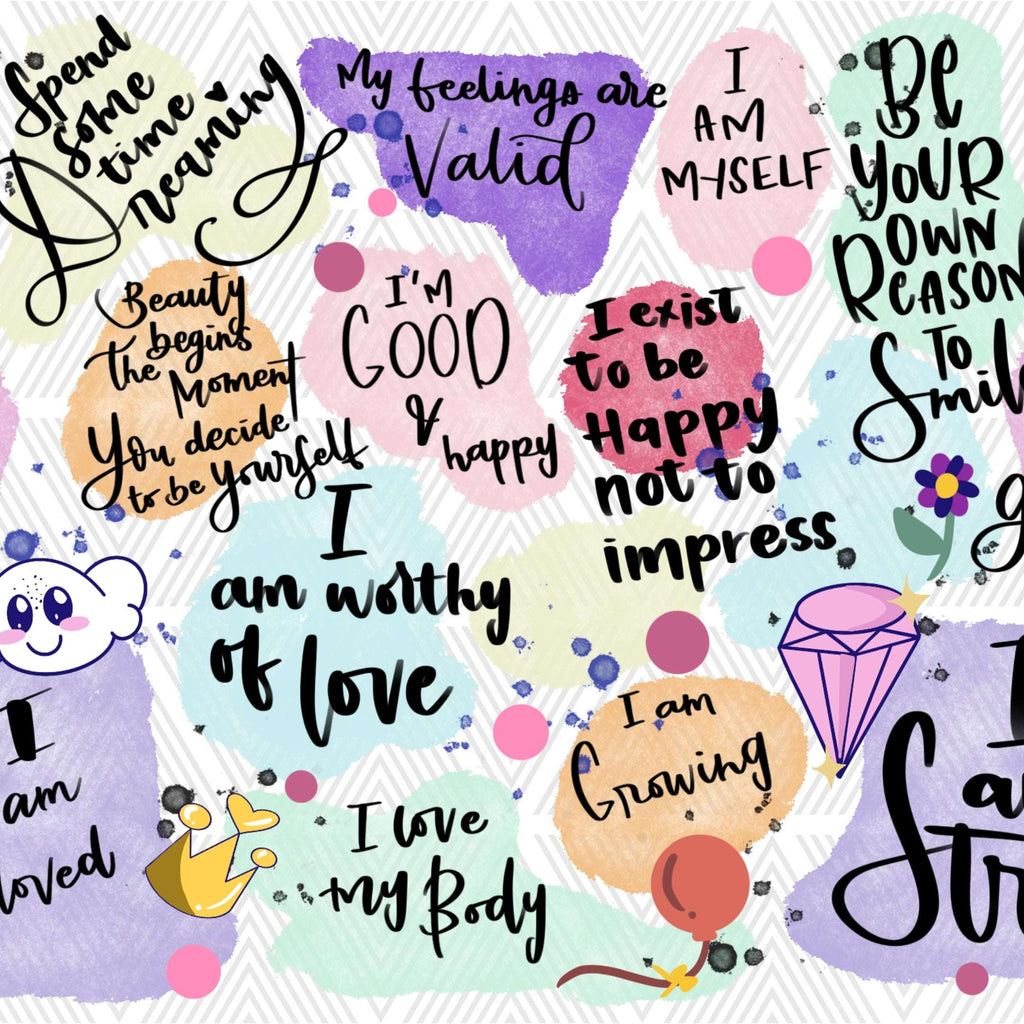 Spend
some
time
Dreaming
My feelings are
Valid
I
AM
MYSELF
BE
YOUR
OWN
REASON
TO
Smil
Beauty
begins
the Moment
You decide
to be yourself
I'M
GOOD
&
happy
I exist
to be
Happy
not to
impress
g
I
am worthy
of love
I
am
loved
I love
my Body
I am
Growing
I
a
Str